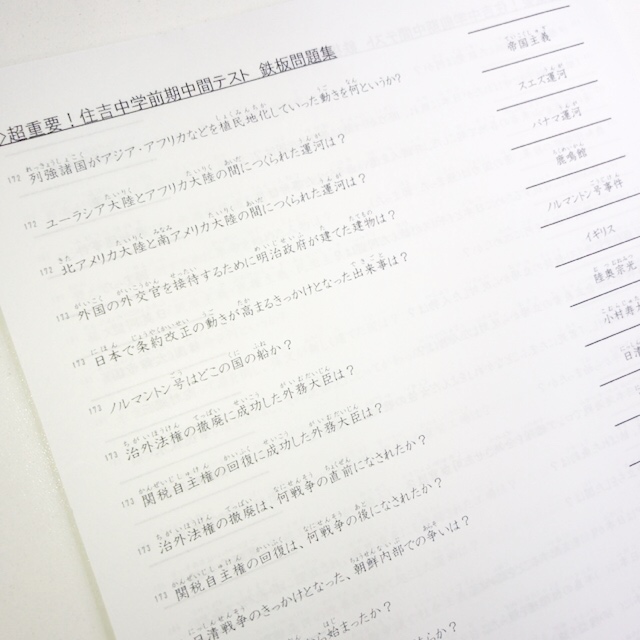 超重要！住吉中学前期中間テスト 鉄板問題集
172 列強諸国がアジア・アフリカなどを植民地化していった動きを何というか？ 帝国主義
172 ユーラシア大陸とアフリカ大陸の間につくられた運河は？ スエズ運河
172 北アメリカ大陸と南アメリカ大陸の間につくられた運河は？ パナマ運河
173 外国の外交官を接待するために明治政府が建てた建物は？ 鹿鳴館
173 日本で条約改正の動きが高まるきっかけとなった出来事は？ ノルマントン号事件
173 ノルマントン号はどこの国の船か？ イギリス
173 治外法権の撤廃に成功した外務大臣は？ 陸奥宗光
173 関税自主権の回復に成功した外務大臣は？ 小村寿太
173 治外法権の撤廃は、何戦争の直前になされたか？ 日清
173 関税自主権の回復は、何戦争の後になされたか？
日清戦争のきっかけとなった、朝鮮内部での争いは？
ら始まったか？
らか？